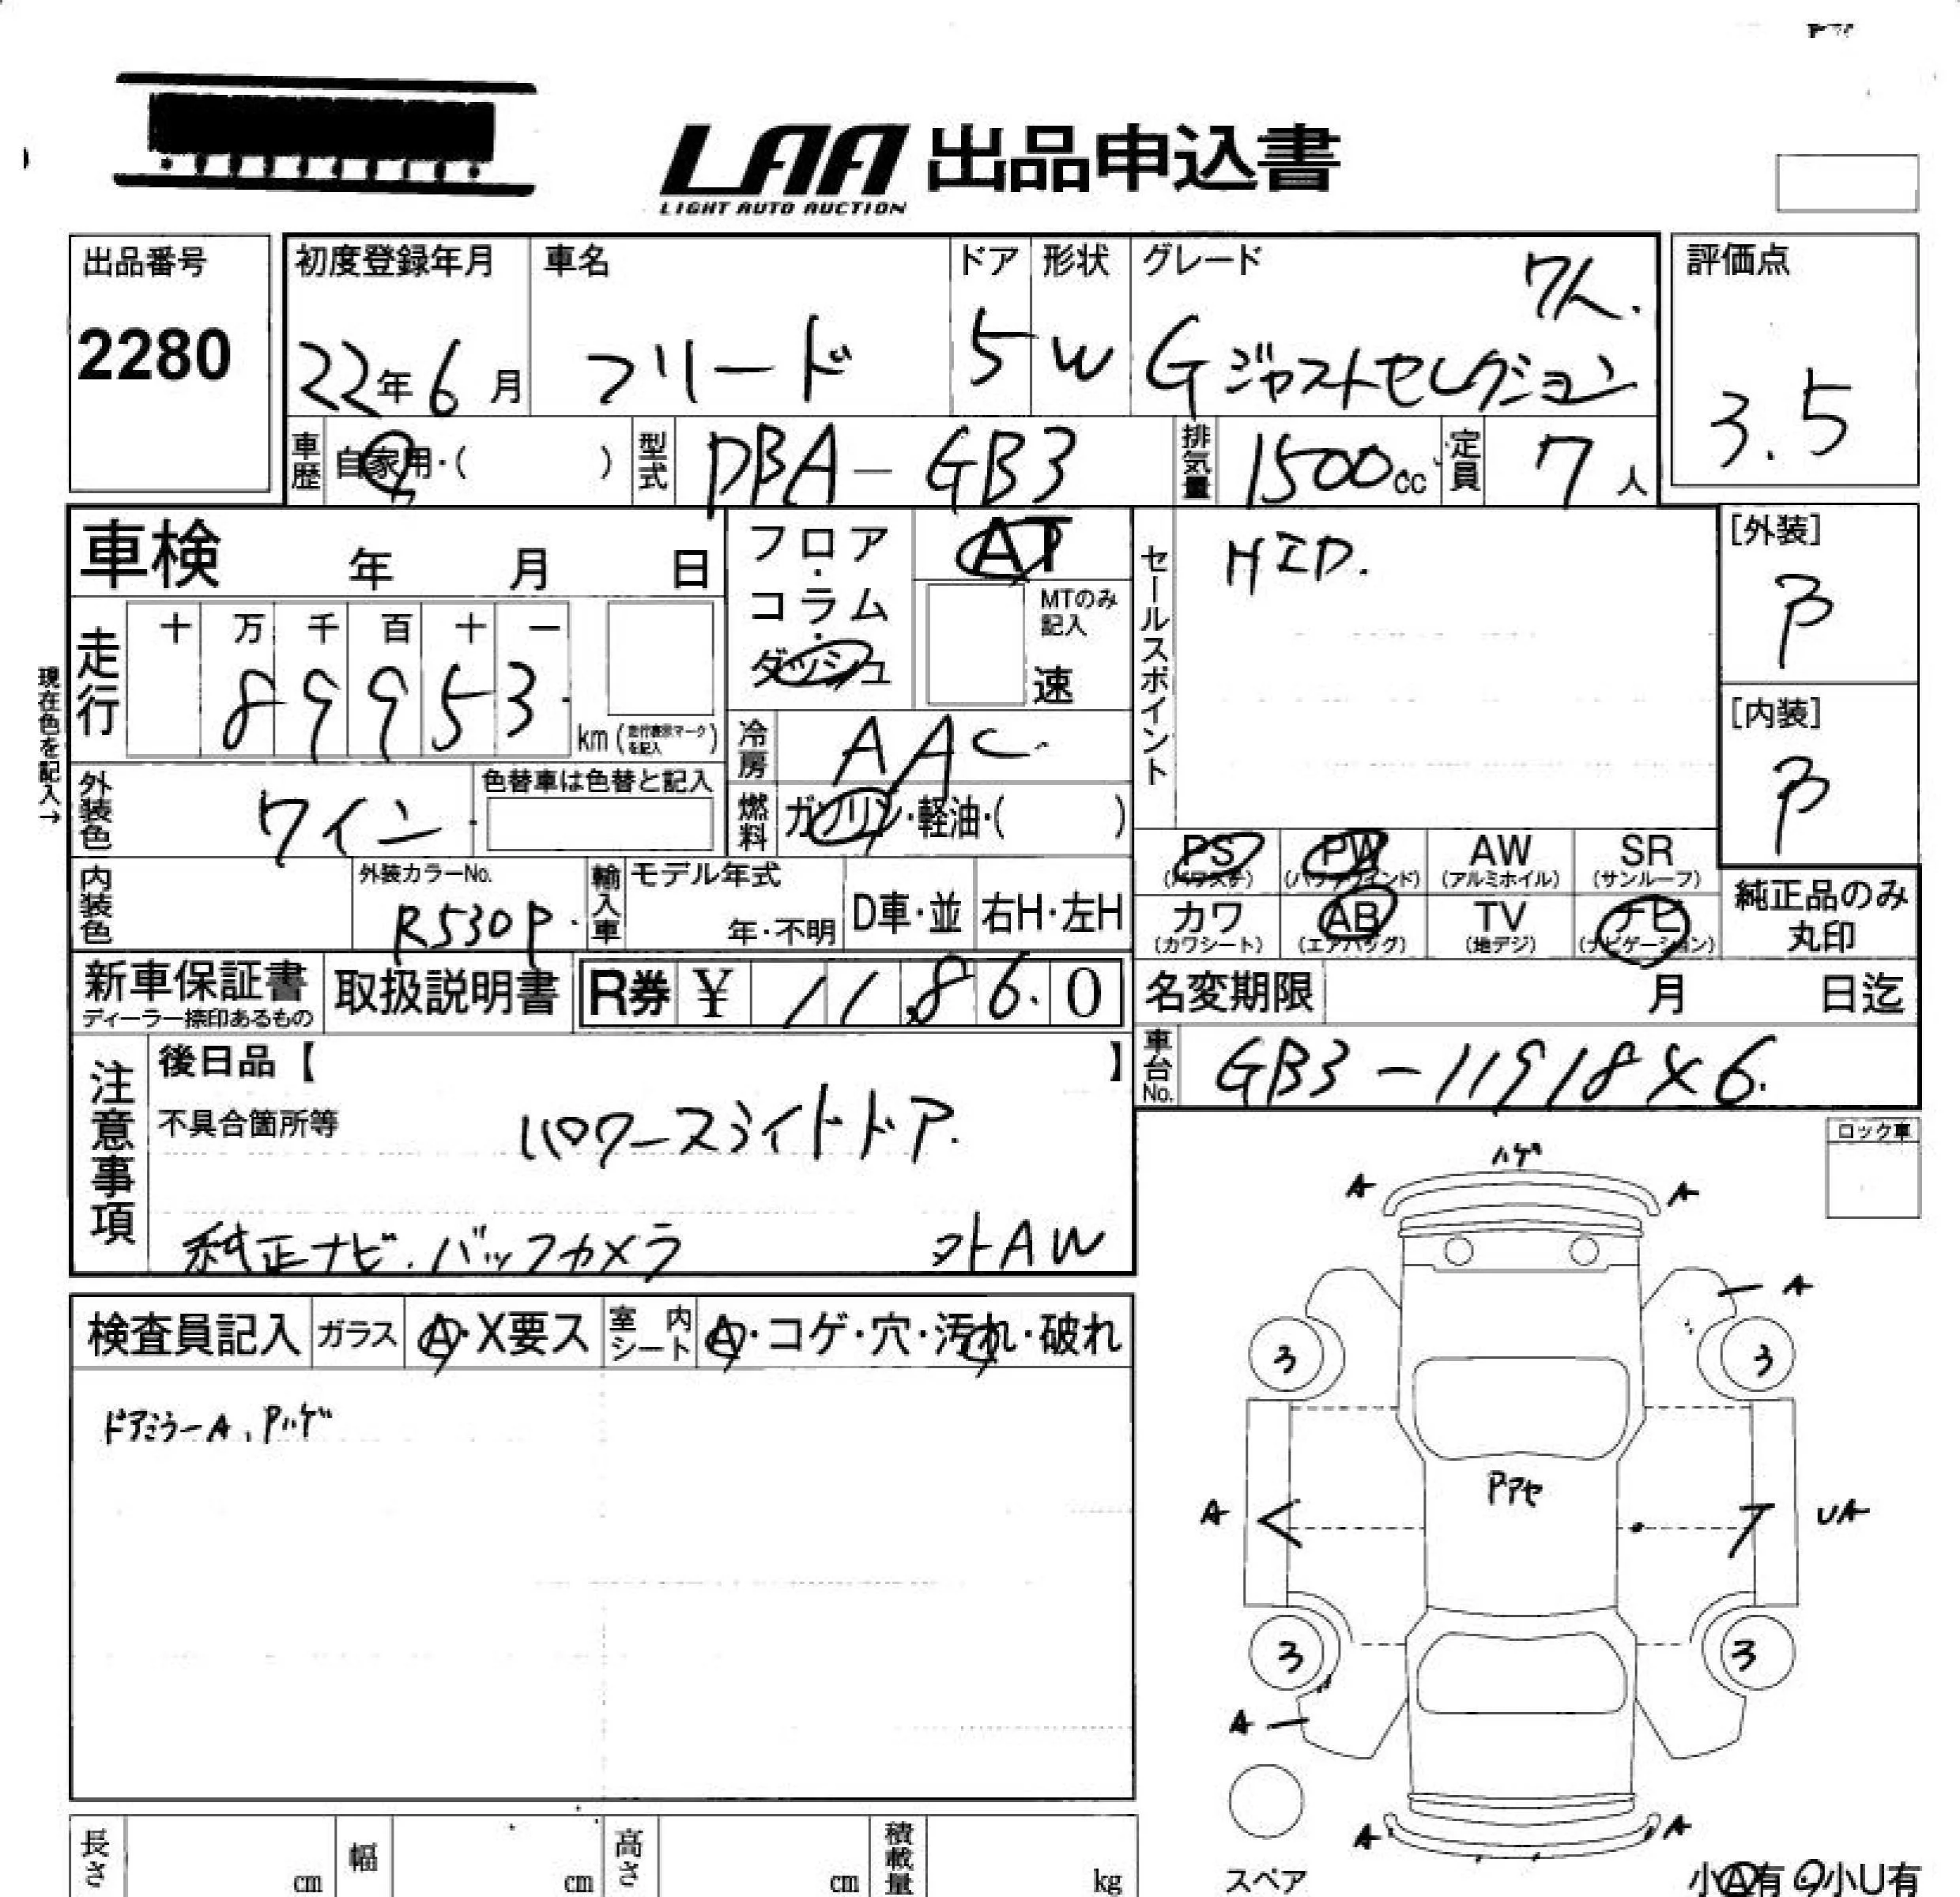 LAA 出品申込書
LIGHT AUTO AUCTION
出品番号
2280
初度登録年月
22年6月
車名
フリード
ドア
5
形状
W
グレード
7人.
G ジャストセレクション
評価点
3.5
車歴 自家用・( )
型式 DBA-GB3
排気量 1500cc
定員 7人
車検 年 月 日
走行 十 万 千 百 十 一
89953
km (走行表示マークを記入)
現在色を記入→
外装色 ワイン
色替車は色替と記入
内装色
外装カラーNo.
R530P
輸入車
モデル年式
年・不明
D車・並
右H・左H
フロア・コラム・ダッシュ
AT
MTのみ記入
速
冷房 AAC
燃料 ガソリン・軽油・( )
セールスポイント
HID.
[外装]
B
[内装]
B
PS PW AW SR
(パワステ) (パワーウインド) (アルミホイル) (サンルーフ)
カワ AB TV ナビ
(カワシート) (エアバッグ) (地デジ) (ナビゲーション)
純正品のみ
丸印
新車保証書
ディーラー捺印あるもの
取扱説明書
R券 ¥ 11,860
名変期限 月 日迄
車台No. GB3-11918X6.
注意事項
後日品【 】
不具合箇所等
パワースライドドア.
純正ナビ.バックカメラ 外AW
検査員記入
ガラス A・X要ス
室内シート A・コゲ・穴・汚れ・破れ
ドアミラーA、Pハゲ
ロック車
ハゲ
A A
A
3 3
Pアセ
A UA
3 3
A
A A
スペア
小A有・小U有
長さ cm
幅 cm
高さ cm
積載量 kg